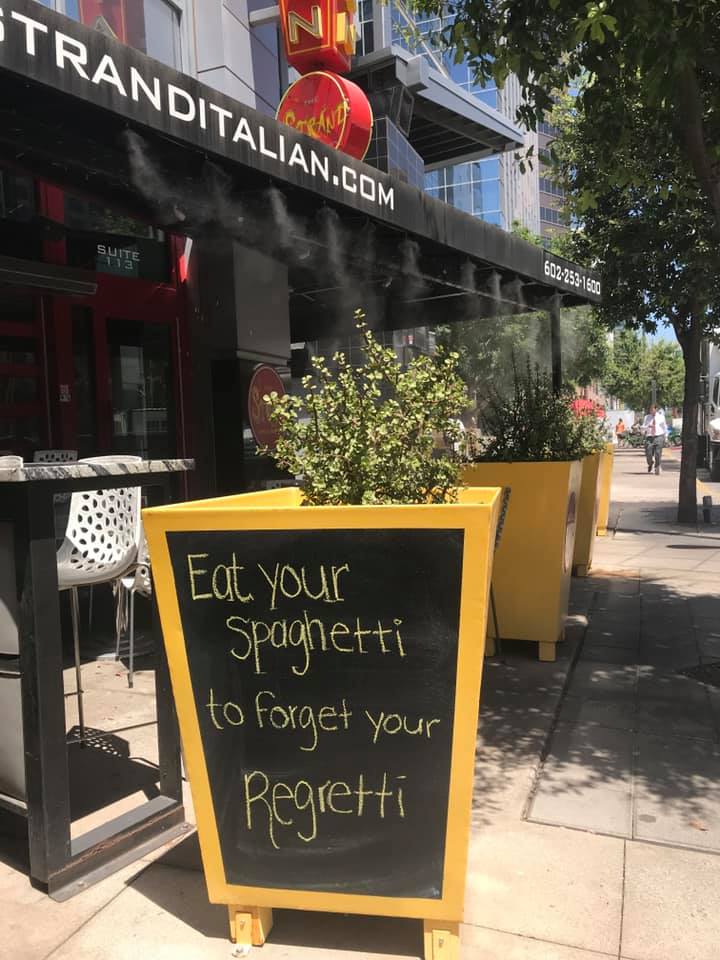 STRANDITALIAN.COM
THE
STRAND
SUITE
113
602-253-1600
Eat your
Spaghetti
to forget your
Regretti